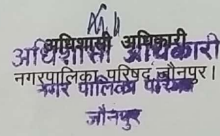 अधिशासी अधिकारी
अधिशासी अधिकारी
नगरपालिका परिषद जौनपुर।
नगर पालिका परिषद
जौनपुर